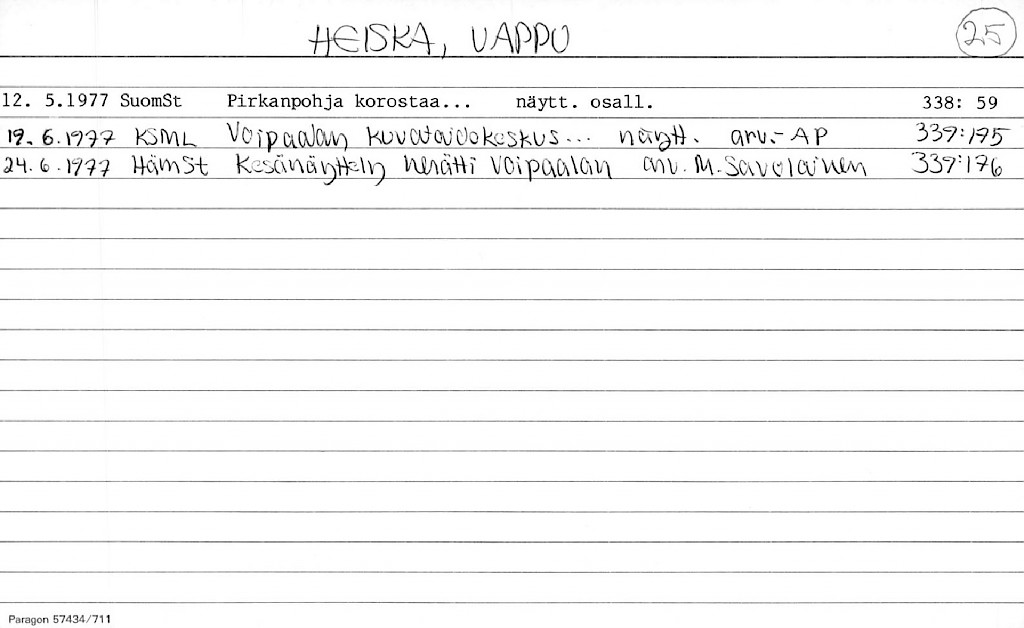 HEISKA, VAPPU 25
12. 5.1977 SuomSt Pirkanpohja korostaa... näytt. osall. 338: 59
19.6.1977 KSML Voipaalan kuvataidekeskus... näytt. arv.-AP 339:175
24.6.1977 HämSt Kesänäyttely herätti Voipaalan arv. M. Savolainen 339:176
Paragon 57434/711